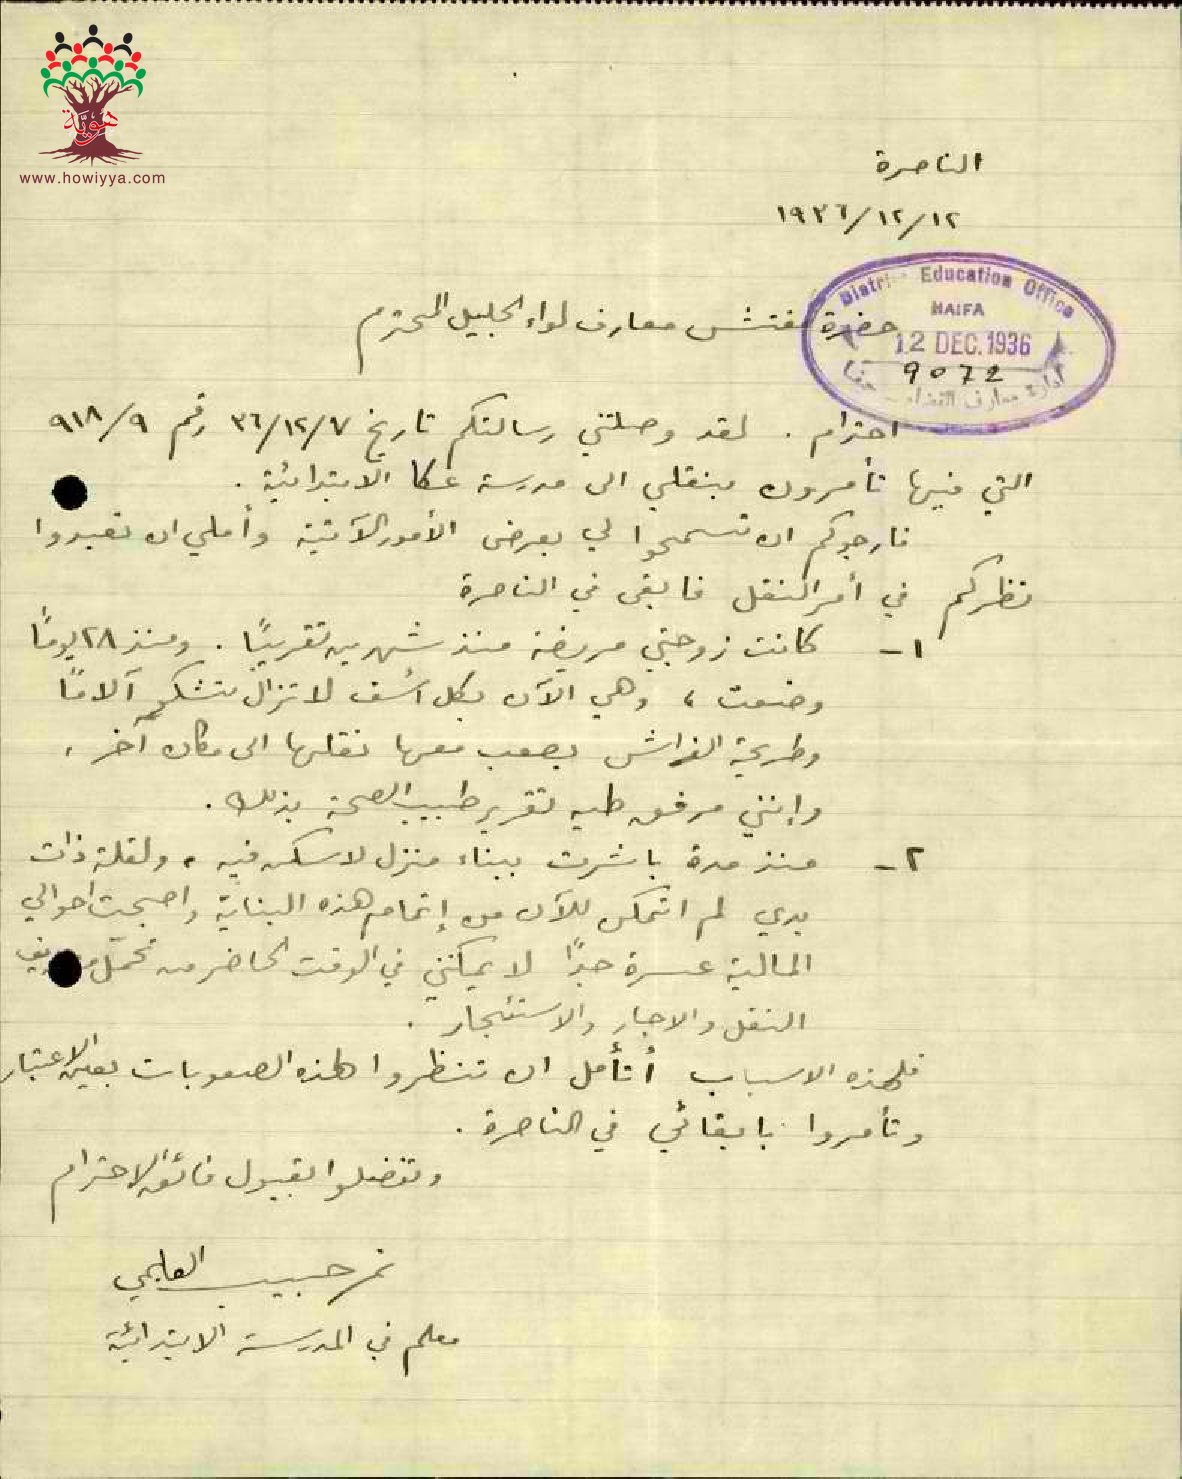 هوية
www.howiyya.com
الناصرة
١٩٣٦/١٢/١٢
District Education Office
HAIFA
12 DEC. 1936
9072
ادارة معارف القضاء حيفا
حضرة مفتش معارف لواء الجليل المحترم
احترام . لقد وصلتني رسالتكم تاريخ ٣٦/١٢/٧ رقم ٩١٨/٩
التي فيها تأمرون بنقلي الى مدرسة عكا الابتدائية .
فارجوكم ان تسمحوا لي بعرض الأمور الآتية وأملي ان تعيدوا
نظركم في أمر النقل فابقى في الناصرة
١- كانت زوجتي مريضة منذ شهرين تقريبًا . ومنذ ٢٨ يومًا
وضعت ، وهي الآن بكل أسف لا تزال تشكو آلامًا
وطريحة الفراش يصعب معها نقلها الى مكان آخر ،
وإنني مرفق طيه تقرير طبيب الصحة بذلك .
٢- منذ مدة باشرت ببناء منزل لاسكن فيه ، ولقلة ذات
يدي لم اتمكن للآن من إتمام هذه البناية واصبحت احوالي
المالية عسرة جدًا لا يمكنني في الوقت الحاضر من تحمّل
النقل والاجار والاستئجار .
فلهذه الاسباب أتأمل ان تنظروا لهذه الصعوبات بعين الاعتبار
وتأمروا بابقائي في الناصرة .
وتفضلوا بقبول فائق الاحترام
نمر حبيب
معلم في المدرسة الابتدائية